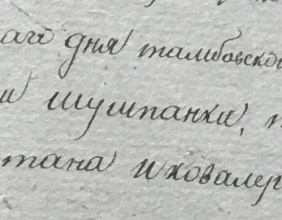 аго дня тамбовско
и шушпанки, п
тана и ковалер